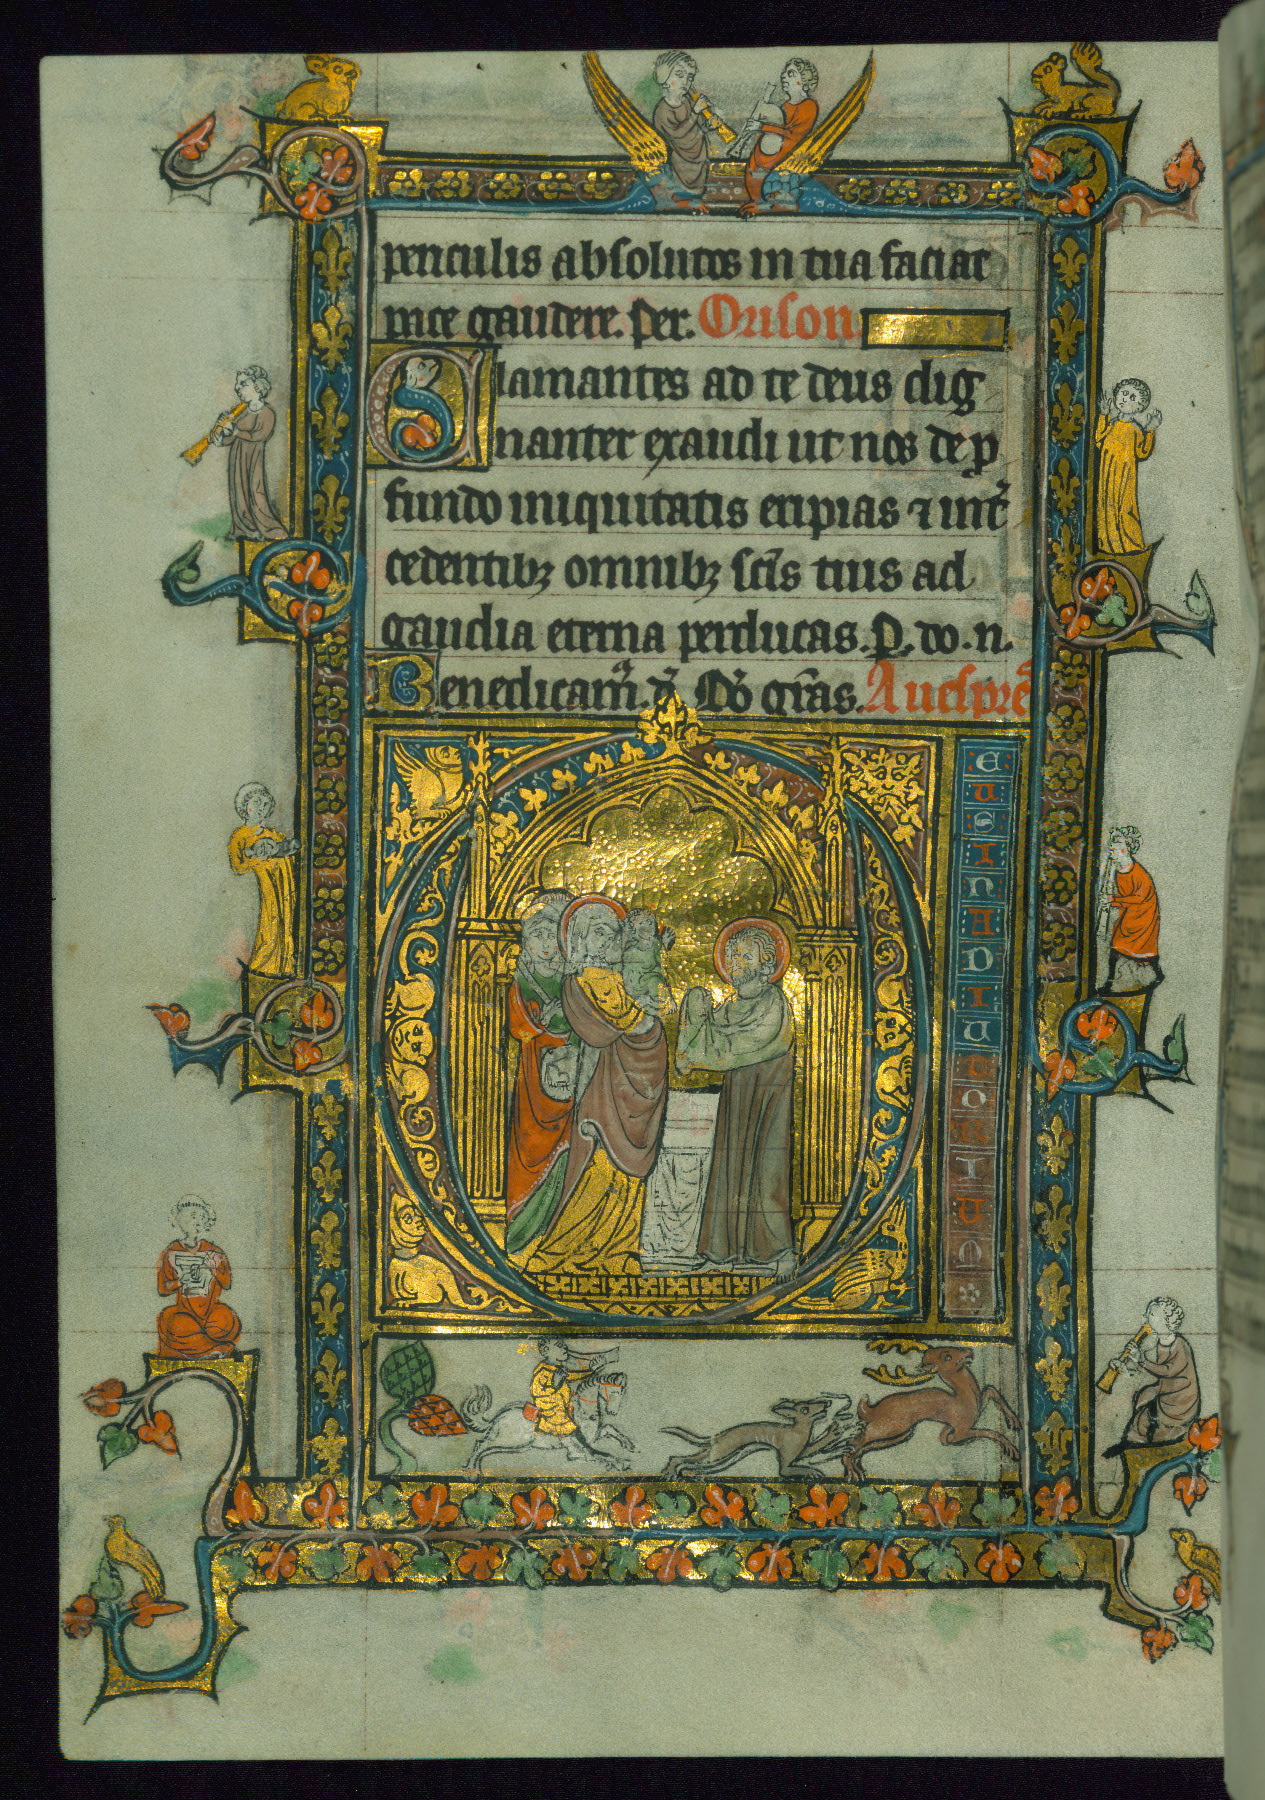 periculis absolutos in tua faciat
pace gaudere. Per. Orison
Clamantes ad te deus dig
nanter exaudi ut nos de p
fundo iniquitatis eripias ⁊ int̾
cedentibꝫ omnibꝫ sc̄is tuis ad
gaudia eterna perducas. P. do. n.
Benedicam̾. d̾. Do̾ gr̄as. A uespre̾
DEUS IN ADIUTORIUM